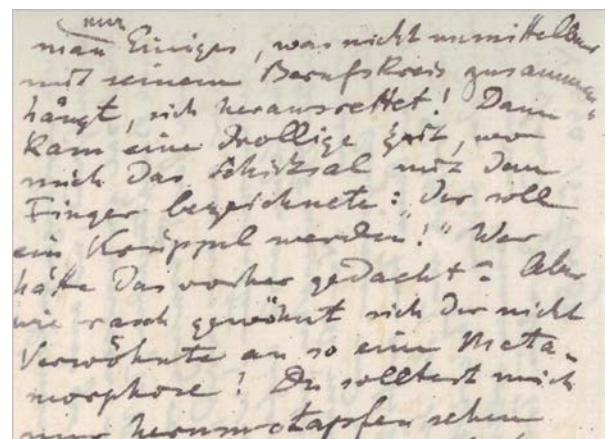 nur
man Einiges, was nicht unmittelbar
mit seinem Berufskreis zusammen-
hängt, sich herausrettet! Dann
kam eine drollige Zeit, wo
mich das Schicksal mit dem
Finger bezeichnete: "Der soll
ein Krüppel werden!" Wer
hätte das vorher gedacht? Aber
wie rasch gewöhnt sich der nicht
Verwöhnte an so eine Meta-
morphose! Du solltest mich
nur herumstapfen sehen